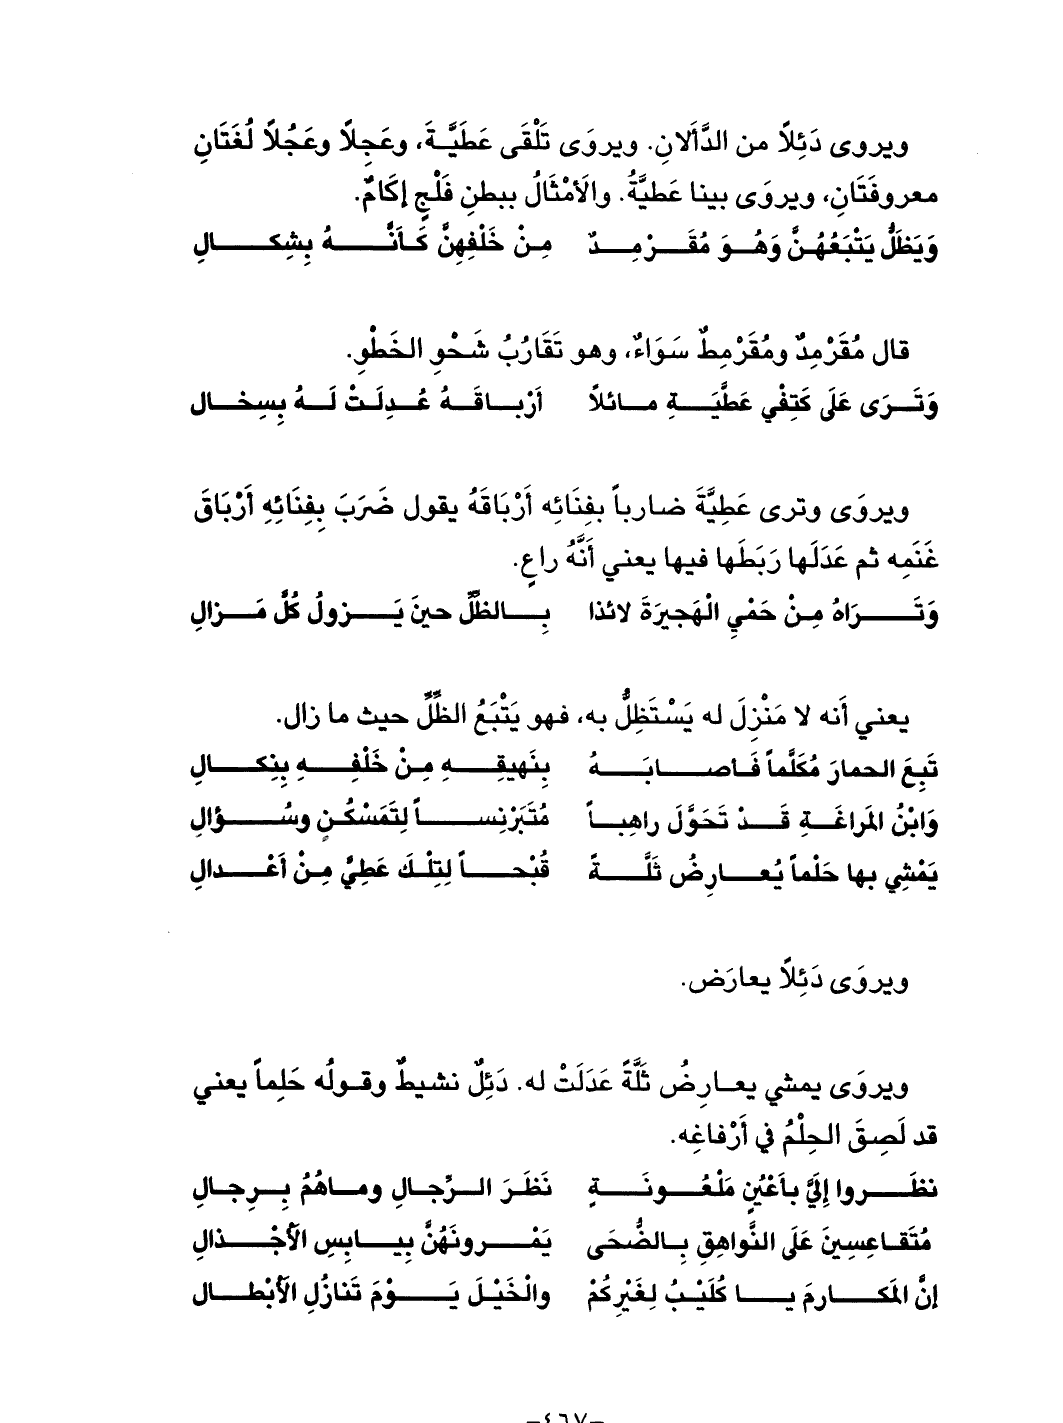 ويروى دَئِلاً من الدَّأَلانِ. ويروَى تَلْقَى عَطَيَّةَ، وعَجِلاً وعَجُلاً لُغَتَانِ
معروفَتَانِ، ويروَى بينا عَطيَّةُ. والَامْثَالُ ببطنِ فَلْجٍ إكَامٌ.
وَيَظَلُّ يَتْبَعُهُنَّ وَهُوَ مُقَرْمِدٌ مِنْ خَلْفِهِنَّ كَأَنَّهُ بِشِكَالِ
قال مُقَرْمِدٌ ومُقَرْمِطٌ سَوَاءٌ، وهو تَقَارُبُ شَحْوِ الخَطْوِ.
وَتَرَى عَلَى كَتِفْي عَطَّيَةِ مائلاً أَرْباقَهُ عُدِلَتْ لَهُ بِسِخال
ويروَى وترى عَطِيَّةَ ضارباً بفِنَائه أَرْبَاقَهُ يقول ضَرَبَ بِفِنَائِهِ أَرْبَاقَ
غَنَمِه ثم عَدَلَها رَبَطَها فيها يعني أنَّهُ راعٍ.
وَتَرَاهُ مِنْ حَمْيِ الْهَجيرَةَ لائذا بِالظلِّ حينَ يَزولُ كُلَّ مَزالِ
يعني أَنه لا مَنْزِلَ له يَسْتَظِلُّ به، فهو يَتْبَعُ الظِّلَّ حيث ما زال.
تَبِعَ الحمارَ مُكَلَّماً فَاصابَهُ بِنَهيقِهِ مِنْ خَلْفِهِ بِنِكالِ
وَابْنُ المَراغَةِ قَدْ تَحَوَّلَ راهِباً مُتَبَرْنِساً لِتَمَسْكُنٍ وسُؤالِ
يَمْشِي بها حَلْماً يُعارِضُ ثَلَّةً قُبْحاً لِتِلْكَ عَطِيَّ مِنْ أَعْدالِ
ويروَى دَئِلاً يعارَض.
ويروَى يمشي يعارِضُ ثَلَّةً عَدَلَتْ له. دَئِلٌ نشيطٌ وقولُه حَلِماً يعني
قد لَصِقَ الحِلْمُ في أَرْفاغِه.
نظَروا إِلَيَّ بأَعْيُنٍ مَلْعُونَةٍ نَظَرَ الرِّجالِ وماهُمُ بِرِجالِ
مُتَقاعِسِينَ عَلَى النَّواهِقِ بِالضُّحَى يَمْرونَهُنَّ بِيابِسِ الأَجْذالِ
إنَّ المَكارِمَ يا كُلَيْبُ لِغَيْرِكُمْ والْخَيْلَ يَوْمَ تَنازُلِ الأبْطال
-٤٦٧-